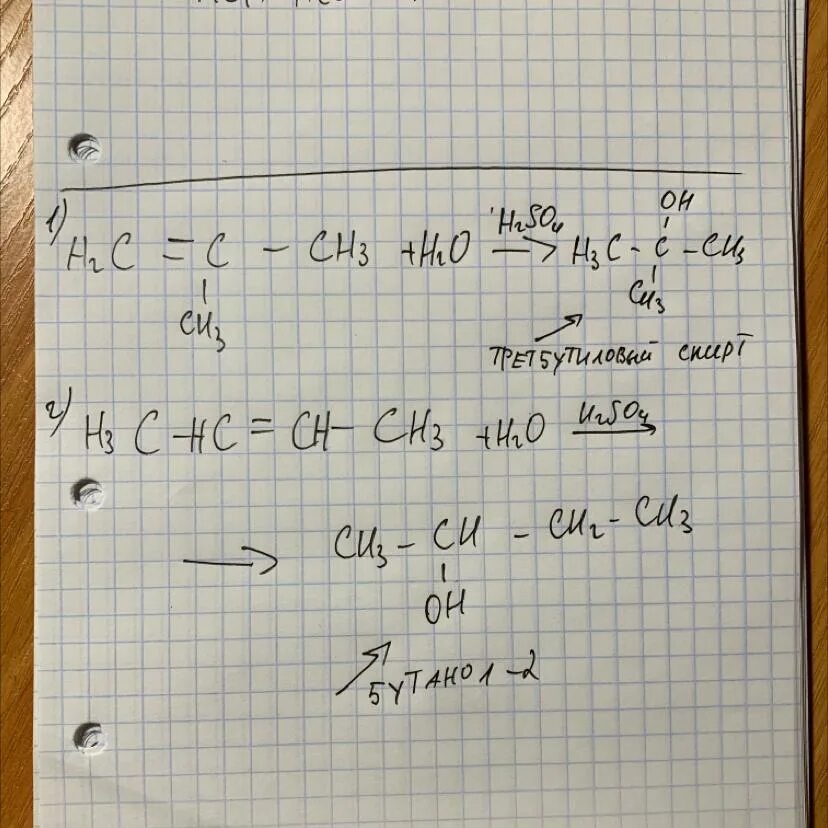 1) H₂C = C – CH₃ + H₂O →(H₂SO₄) H₃C - C - CH₃
OH
CH₃
CH₃
ТРЕТБУТИЛОВЫЙ спирт
2) H₃C - HC = CH - CH₃ + H₂O →(H₂SO₄)
→ CH₃ - CH - CH₂ - CH₃
OH
БУТАНОЛ -2